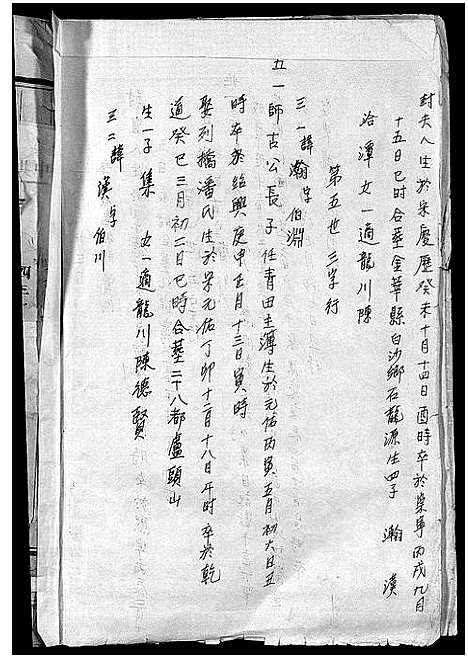 封夫人生於宋慶歷癸未十月十四日酉時卒於崇寧丙戌九月
十五日巳時合墓金華縣白沙鄉石龍源生四子 瀚 漢
洽 潭 女一適龍川陳
第五世 三字行
三一諱瀚字伯淵
五一師古公長子任青田主薄生於元佑丙寅五月初六日丑
時卒於紹興庚申正月十三日寅時
娶列橋潘氏生於宋元佑丁卯十二月十八日午時卒於乾
道癸巳三月初二日巳時合墓二十八都盧頭山
生一子集 女一適龍川陳德賢
三二諱漢字伯川